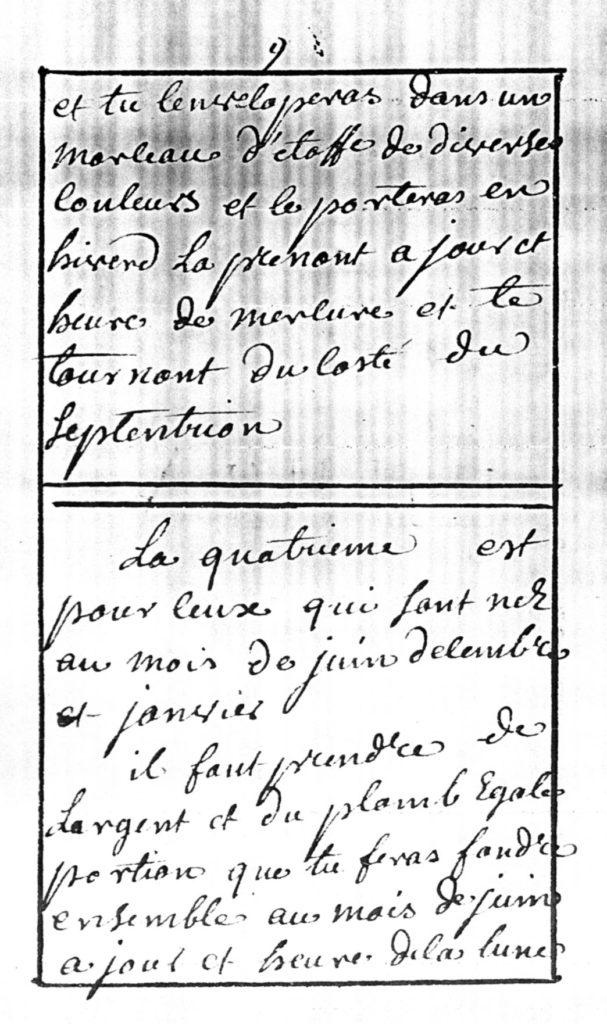 9
et tu lenveloperas dans un
morceau d'étoffe de diverses
couleurs et le porteras en
hiverd La prenont a jour et
heure de mercure et te
tournont du costé du
septentrion
La quatrieme est
pour ceux qui sont nez
au mois de juin decembre
et janvier
il faut prendre de
Largent et du plomb Egale
portion que tu feras fondre
ensemble au mois de juin
a jour et heure dela lune